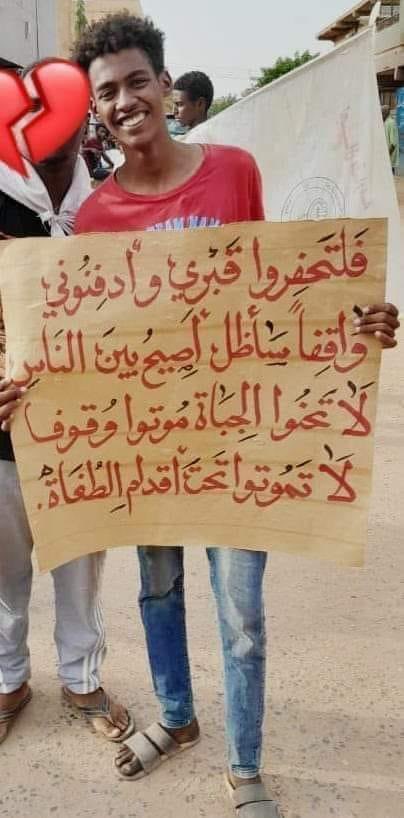 فَلتَحفِروا قَبْرِي وأدفِنُوني
وَاقِفاً سَأظل أصِيحُ بَينَ النَاسِ
لَا تَحنُوا الجِبَاة مُوتوا وُقوفا
لَا تَمُوتوا تَحتَ أقدام الطُغَاة.
TEAM